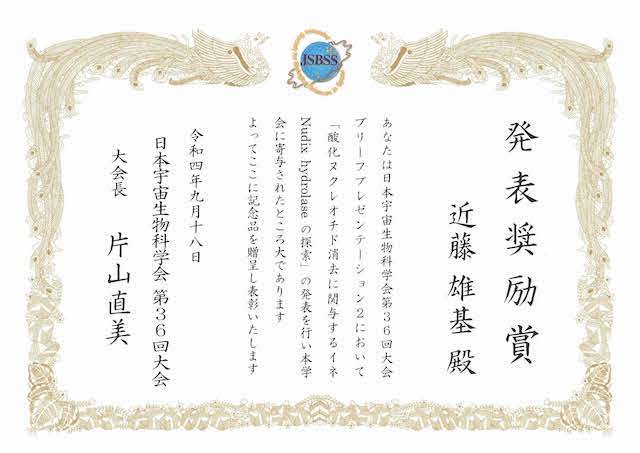 JSBSS
発表奨励賞
近藤雄基 殿
あなたは日本宇宙生物科学会第36回大会
ブリーフプレゼンテーション2において
「酸化ヌクレオチド消去に関与するイネ
Nudix hydrolase の探索」の発表を行い本学
会に寄与されたところ大であります
よってここに記念品を贈呈し表彰いたします
令和四年九月十八日
日本宇宙生物科学会 第36回大会
大会長 片山直美